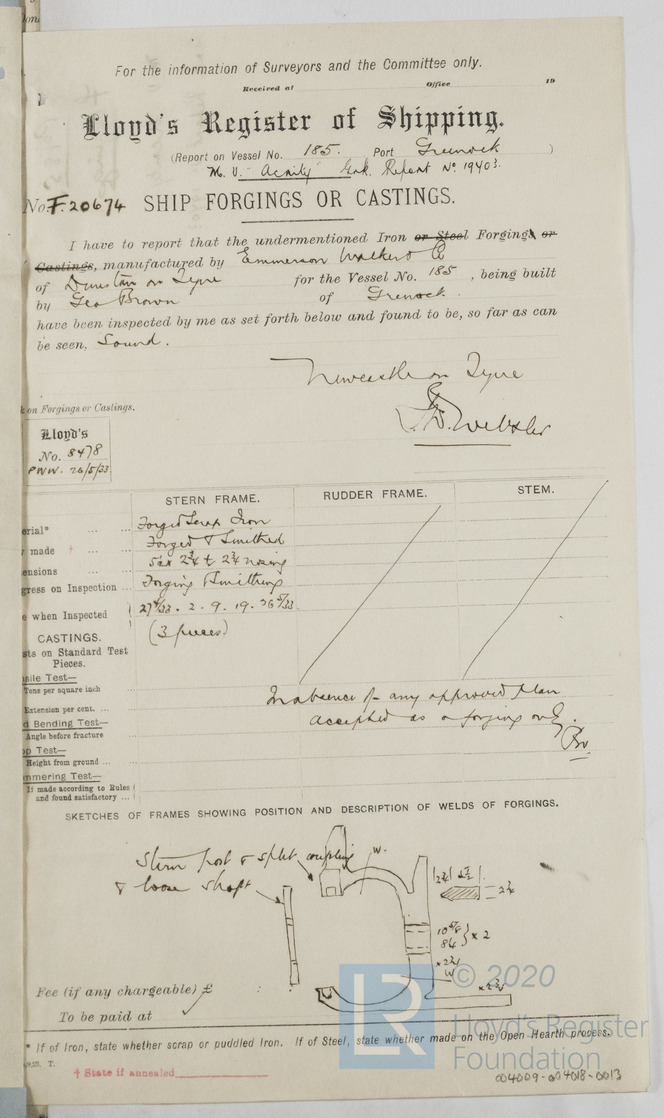 For the information of Surveyors and the Committee only.
Received at Office 19
Lloyd's Register of Shipping.
(Report on Vessel No. 185. Port Greenock )
M.V. "Acrity" Gnk. Report No. 19403.
No. F.20674 SHIP FORGINGS OR CASTINGS.
I have to report that the undermentioned Iron or Steel Forgings or
Castings, manufactured by Emmerson Walkers Co
of Dunstan on Tyne for the Vessel No. 185, being built
by Geo Brown of Greenock.
have been inspected by me as set forth below and found to be, so far as can
be seen, Sound.
Newcastle on Tyne
Webster
k on Forgings or Castings.
Lloyd's
No. 8478
PWW. 26/5/33
STERN FRAME. RUDDER FRAME. STEM.
erial* Forged Scrap Iron
made Forged & Smithed
ensions 5½ x 2¾ & 2¾ nosing
gress on Inspection Forging & Smithing
e when Inspected 27 4/33. 2. 9. 19. 26 5/33
CASTINGS. (3 pieces)
sts on Standard Test
Pieces.
sile Test—
Tons per square inch
In absence of any approved plan
Extension per cent.
accepted as a forging only.
d Bending Test—
Angle before fracture
op Test—
Height from ground
mmering Test—
If made according to Rules
and found satisfactory
SKETCHES OF FRAMES SHOWING POSITION AND DESCRIPTION OF WELDS OF FORGINGS.
Stern post & split coupling W.
& loose shaft
2¾ 5½ 2¾
10 5/8
8¼ } x 2
x 2¾
W
x 2¾
Fee (if any chargeable) £ :
To be paid at
© 2020
LR
Lloyd's Register
Foundation
* If of Iron, state whether scrap or puddled Iron. If of Steel, state whether made on the Open Hearth process.
T.
† State if annealed
004009-004018-0013